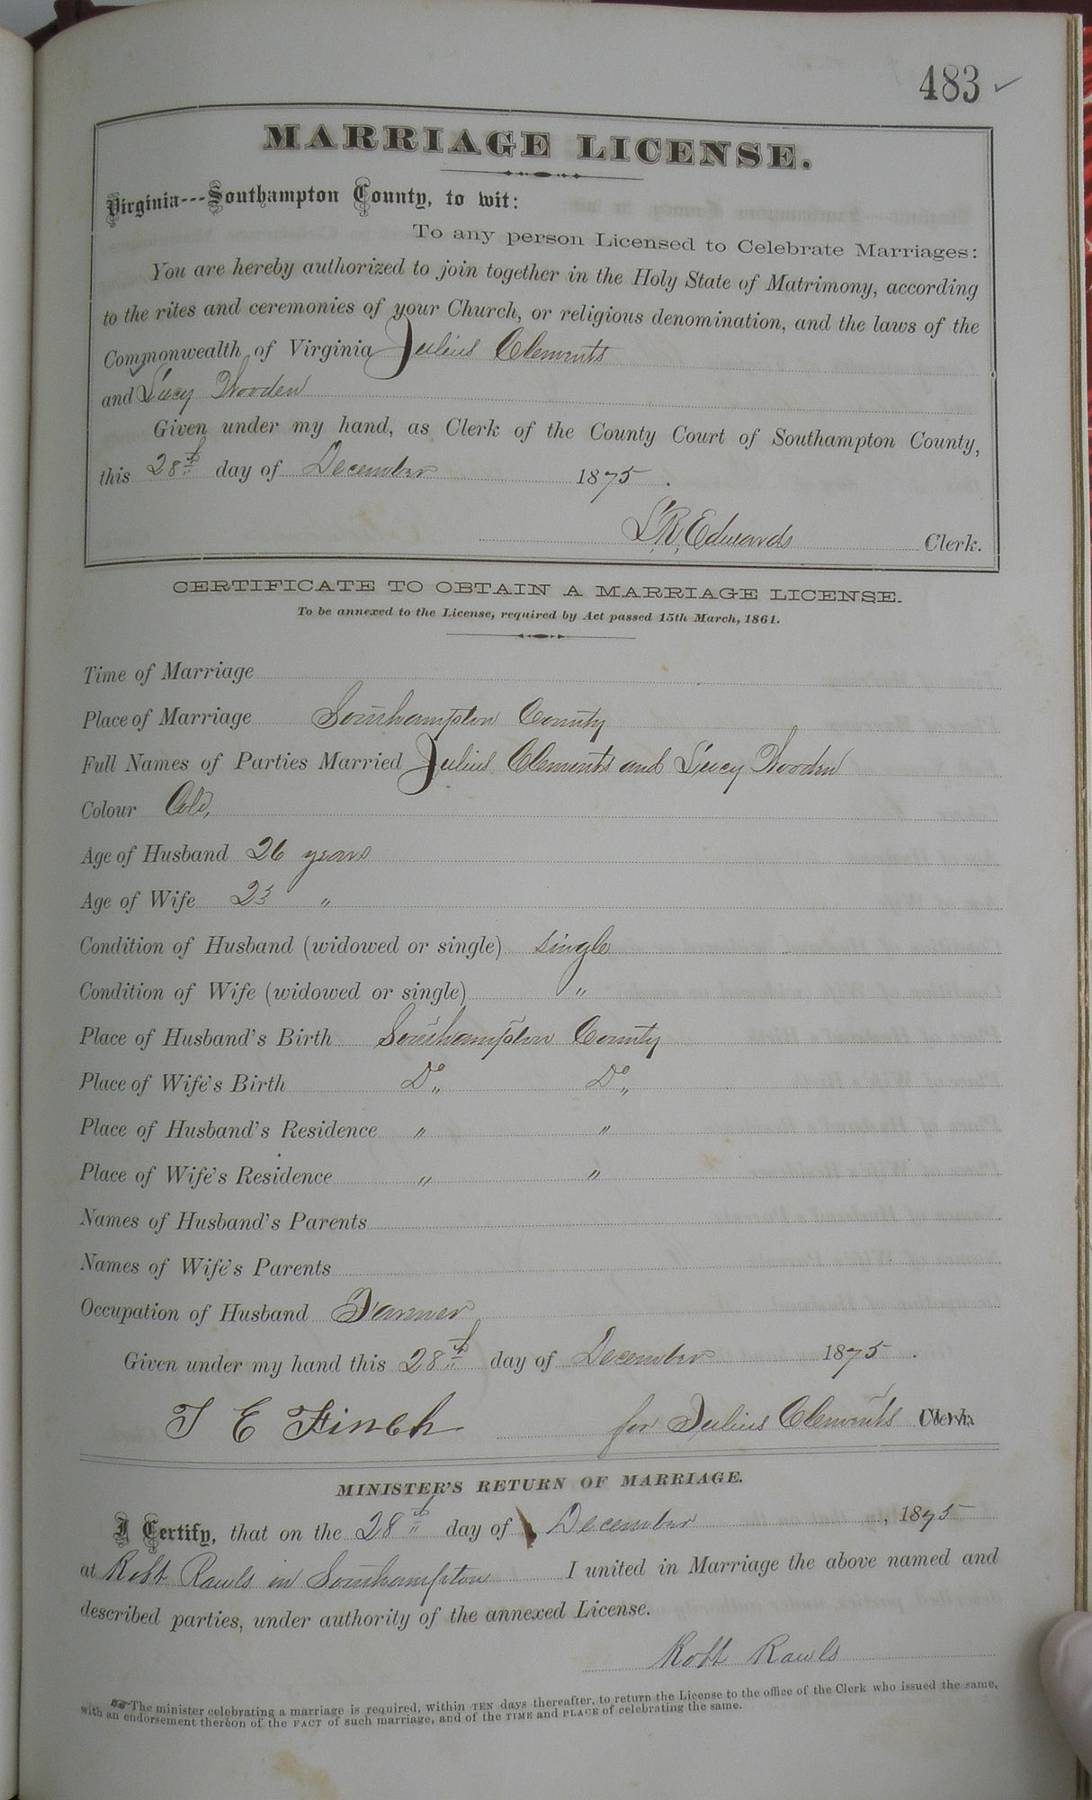 483 ✓
MARRIAGE LICENSE.
Virginia---Southampton County, to wit:
To any person Licensed to Celebrate Marriages:
You are hereby authorized to join together in the Holy State of Matrimony, according
to the rites and ceremonies of your Church, or religious denomination, and the laws of the
Commonwealth of Virginia Julius Clements
and Lucy Wooden
Given under my hand, as Clerk of the County Court of Southampton County,
this 28th day of December 1875.
L.R. Edwards Clerk.
CERTIFICATE TO OBTAIN A MARRIAGE LICENSE.
To be annexed to the License, required by Act passed 15th March, 1861.
Time of Marriage
Place of Marriage Southampton County
Full Names of Parties Married Julius Clements and Lucy Wooden
Colour Cold,
Age of Husband 26 years
Age of Wife 23 "
Condition of Husband (widowed or single) single
Condition of Wife (widowed or single) "
Place of Husband's Birth Southampton County
Place of Wife's Birth Do " Do "
Place of Husband's Residence " "
Place of Wife's Residence " "
Names of Husband's Parents
Names of Wife's Parents
Occupation of Husband Farmer
Given under my hand this 28th day of December 1875.
T E Finch for Julius Clements Clerk.
MINISTER'S RETURN OF MARRIAGE.
I Certify, that on the 28th day of December, 1875
at Robt Rawls in Southampton I united in Marriage the above named and
described parties, under authority of the annexed License.
Robt Rawls
The minister celebrating a marriage is required, within TEN days thereafter, to return the License to the office of the Clerk who issued the same,
with an endorsement thereon of the FACT of such marriage, and of the TIME and PLACE of celebrating the same.